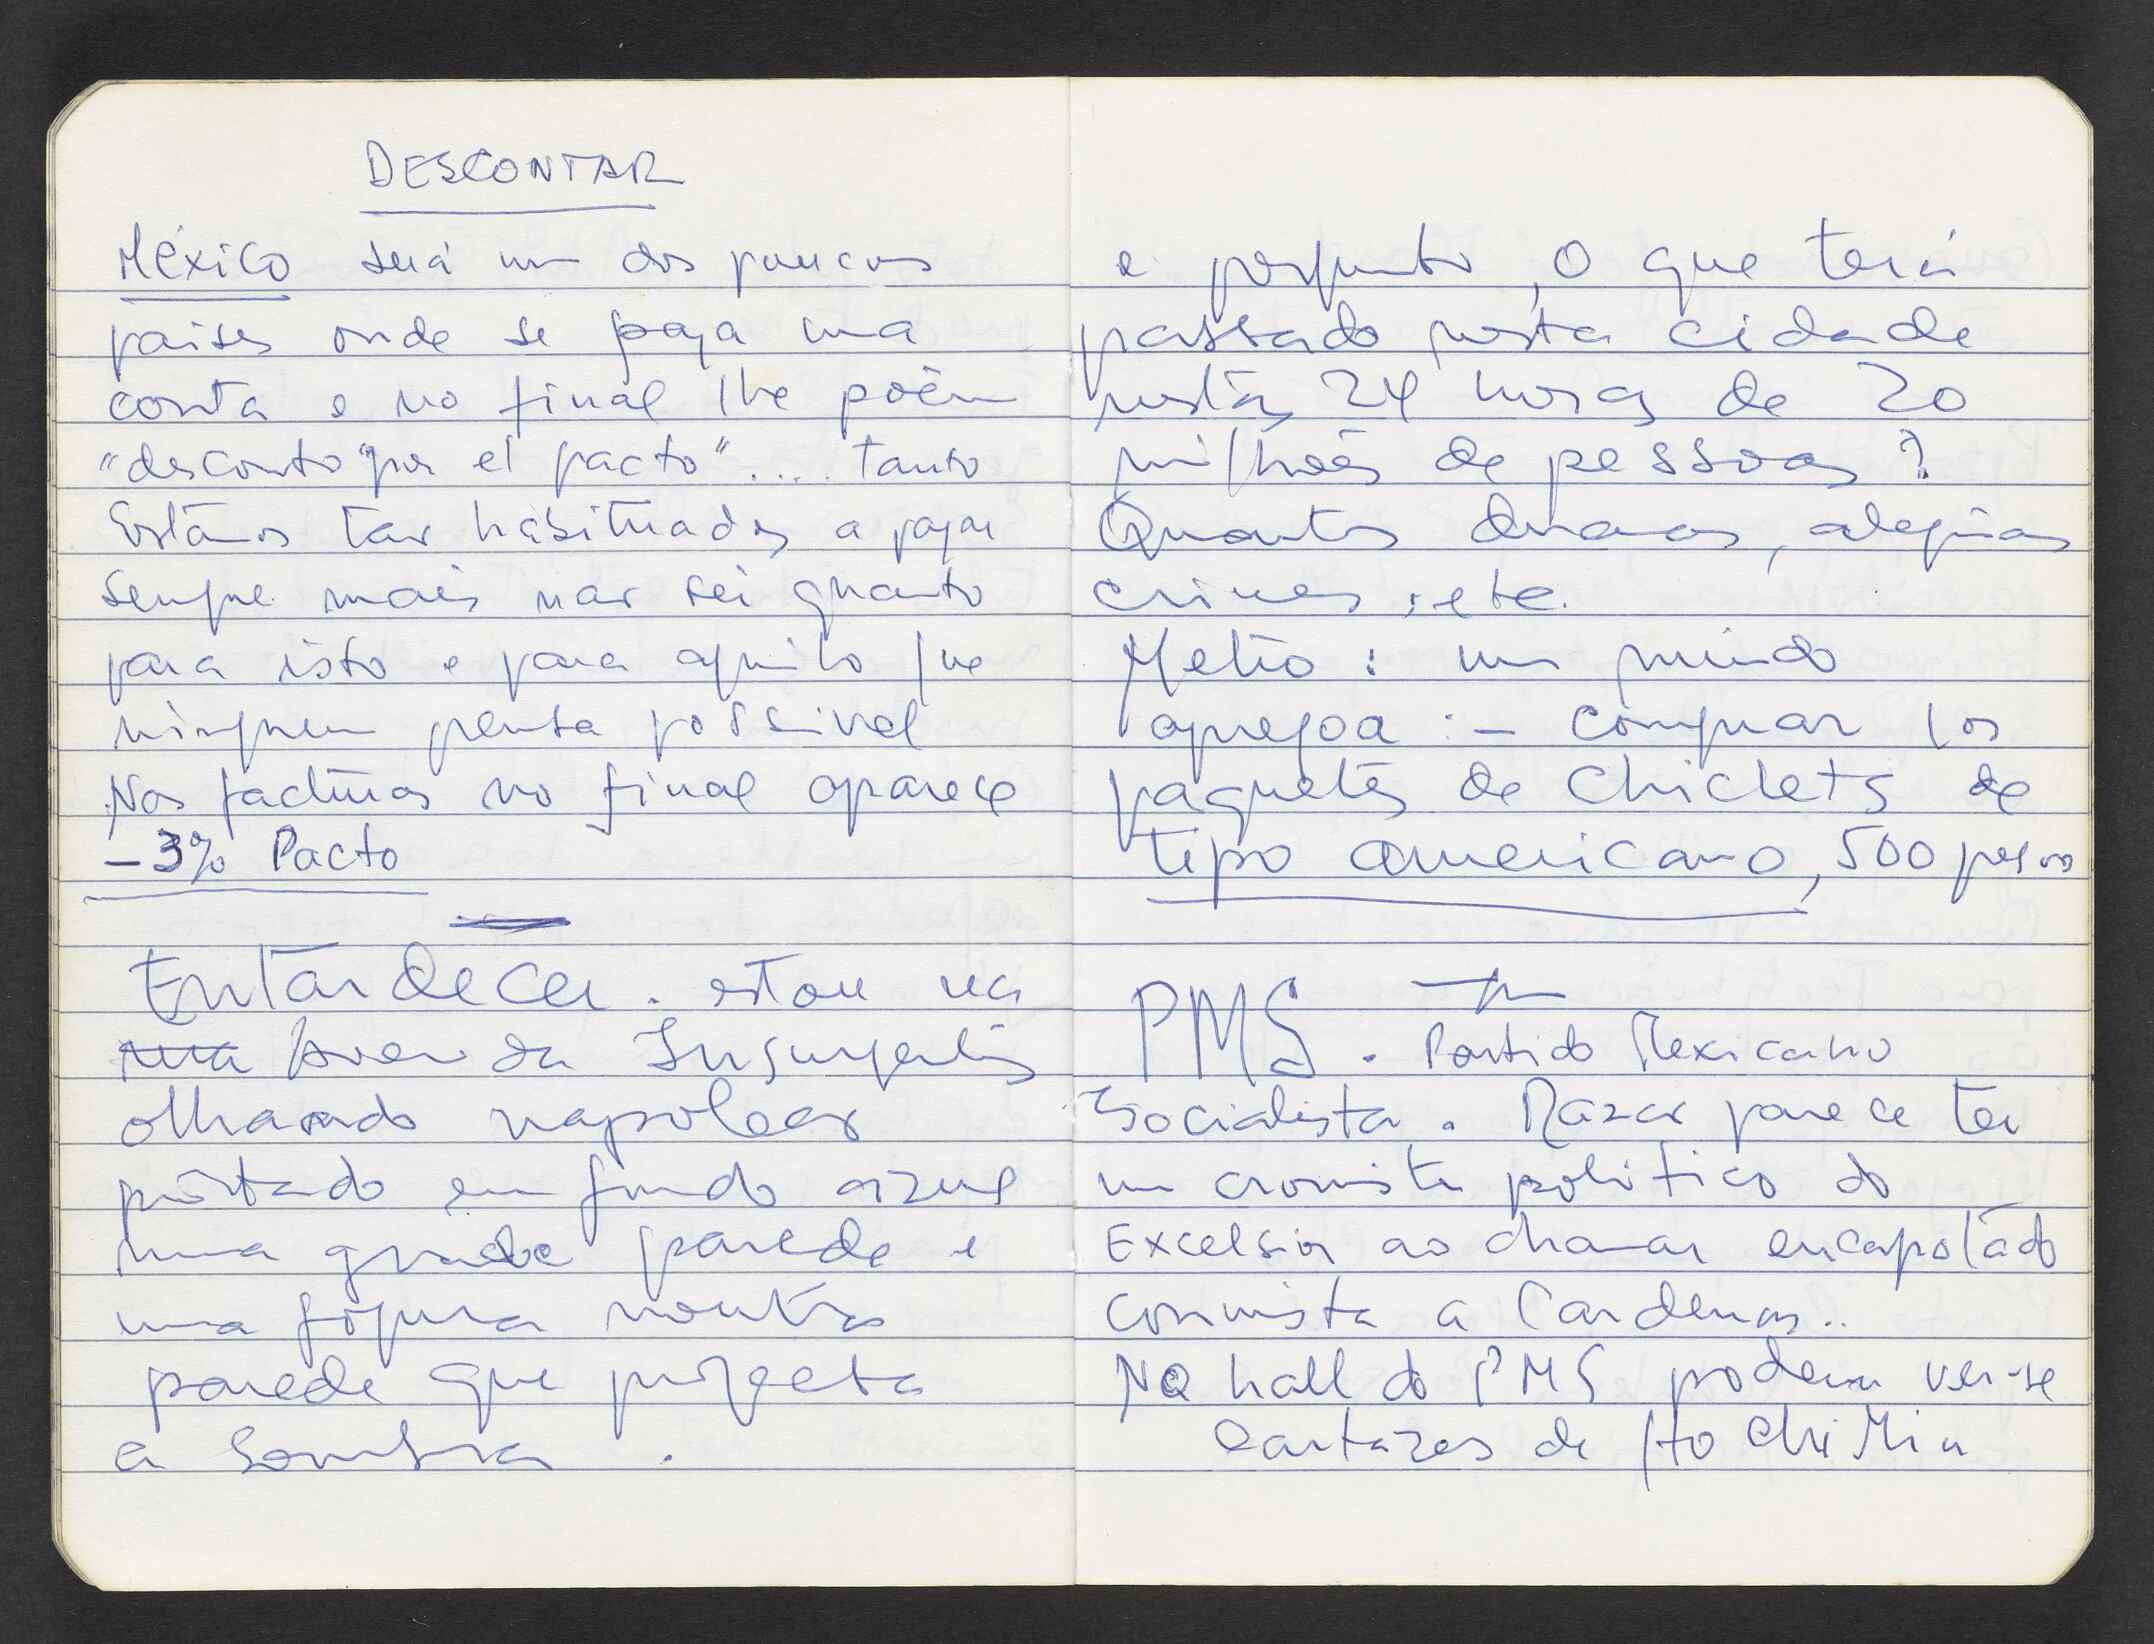 DESCONTAR
México será um dos poucos
países onde se paga uma
conta e no final lhe poêm
"desconto "por el pacto".... tanto
Estamos tão habituados a pagar
sempre mais não sei quanto
para isto e para aquilo que
ninguem pensa possivel
Nas facturas no final aparece
-3% Pacto
Entardecer. estou na
rua Avenida Insurgentes
olhando napoleão
pintado em fundo azul
numa grande parede e
uma figura noutra
parede que projecta
a sombra.
e pergunto, O que terá
passado nesta cidade
nestas 24 horas de 20
milhões de pessoas?
Quantos dramas, alegrias
crimes, etc.
Metro: um miudo
apregoa: - comprar los
paquetes de Chiclets de
tipo americano, 500 pesos
PMS. Partido Mexicano
Socialista. Razão parece ter
um cronista politico do
Excelsior ao chamar encapotado
comunista a Cardenas..
No hall do PMS podem ver-se
cartazes de Ho Chi Min